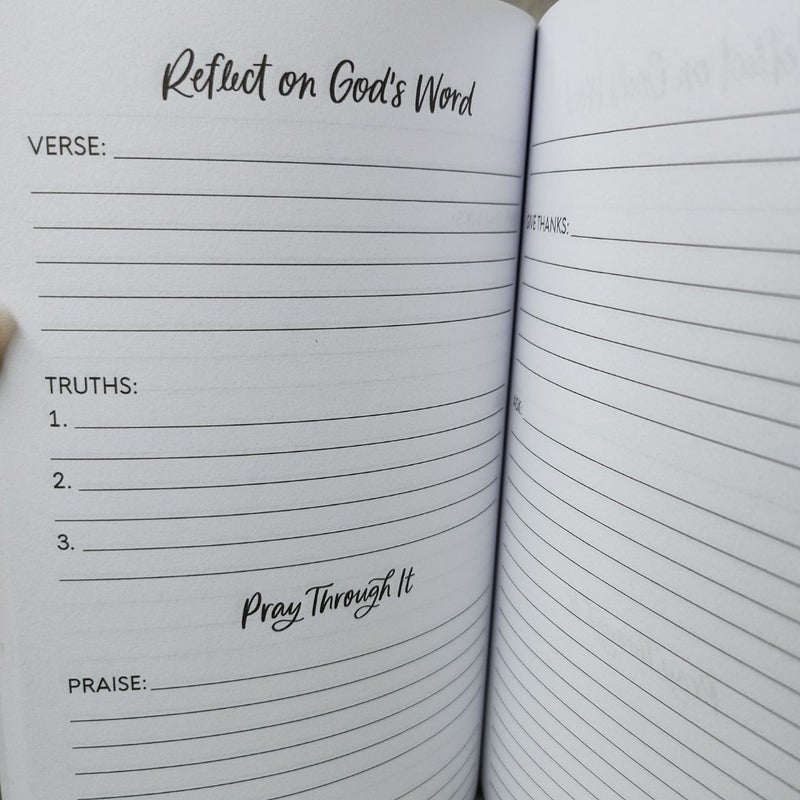 Reflect on God's Word
VERSE:
TRUTHS:
1.
2.
3.
Pray Through It
PRAISE:
GIVE THANKS:
ASK: